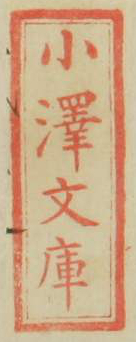 小澤文庫